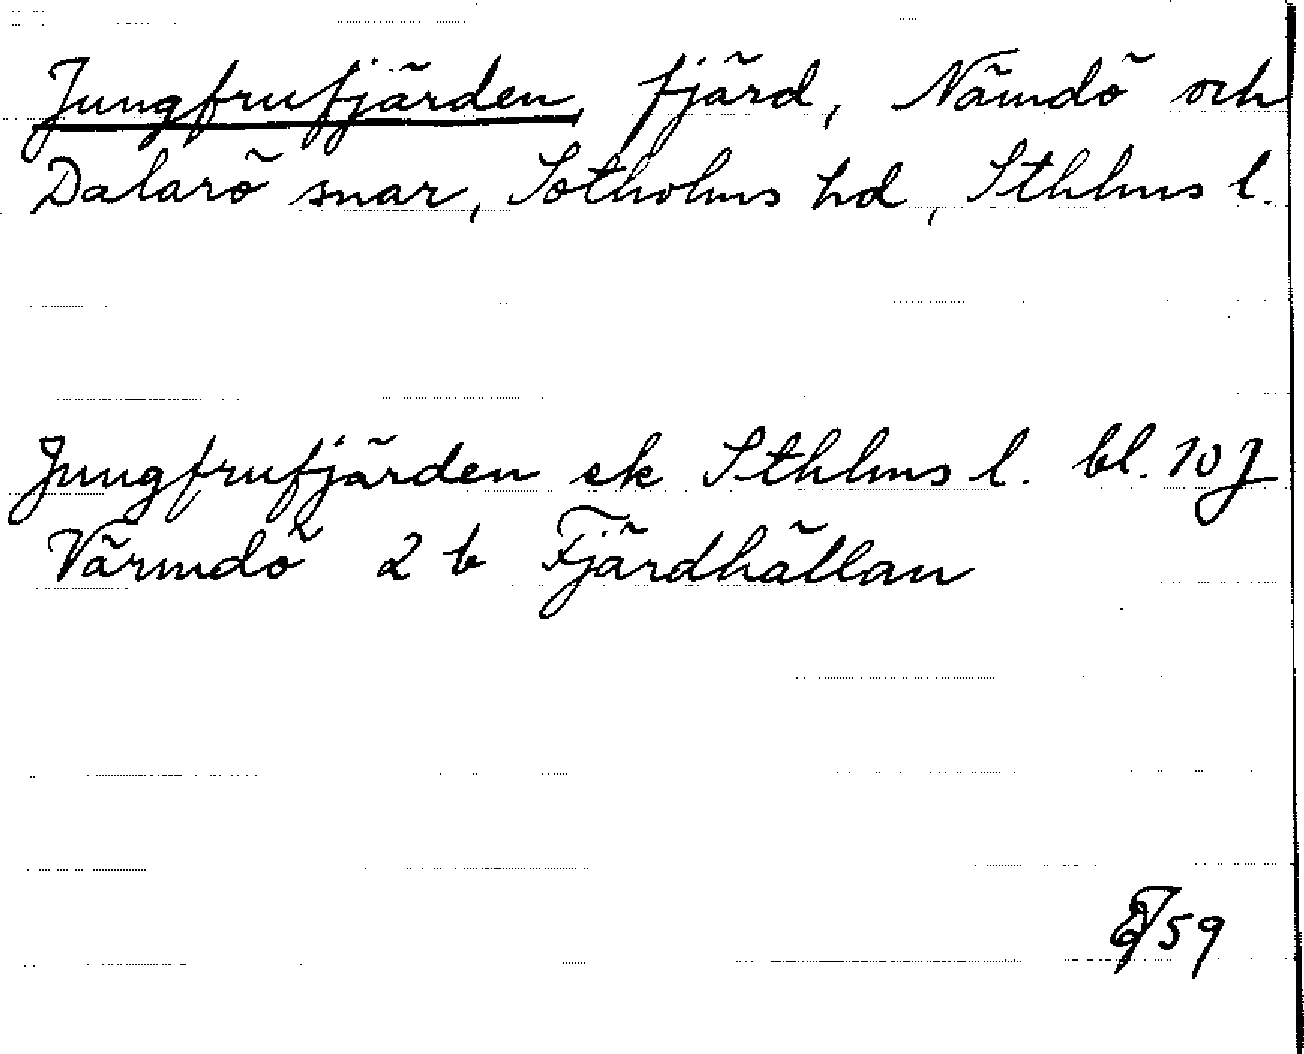 Jungfrufjärden, fjärd, Nämdö och
Dalarö snar, Sotholms hd, Sthlms l.
Jungfrufjärden ek Sthlms l. bl. 10J
Värmdö 2 b Fjärdhällan
59